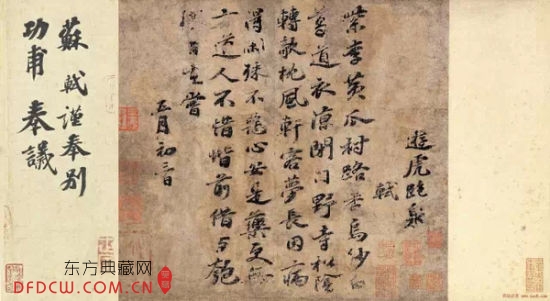 遊虎跑泉
軾
紫李黄瓜村路香烏紗白
葛道衣凉閉門野寺松陰
轉欹枕風軒客夢長因病
得閑殊不惡心安是藥更無
方道人不惜階前借与匏
樽自在嘗
月初三日
蘇軾謹奉別
功甫奉議
东方典藏网
DFDCW.COM